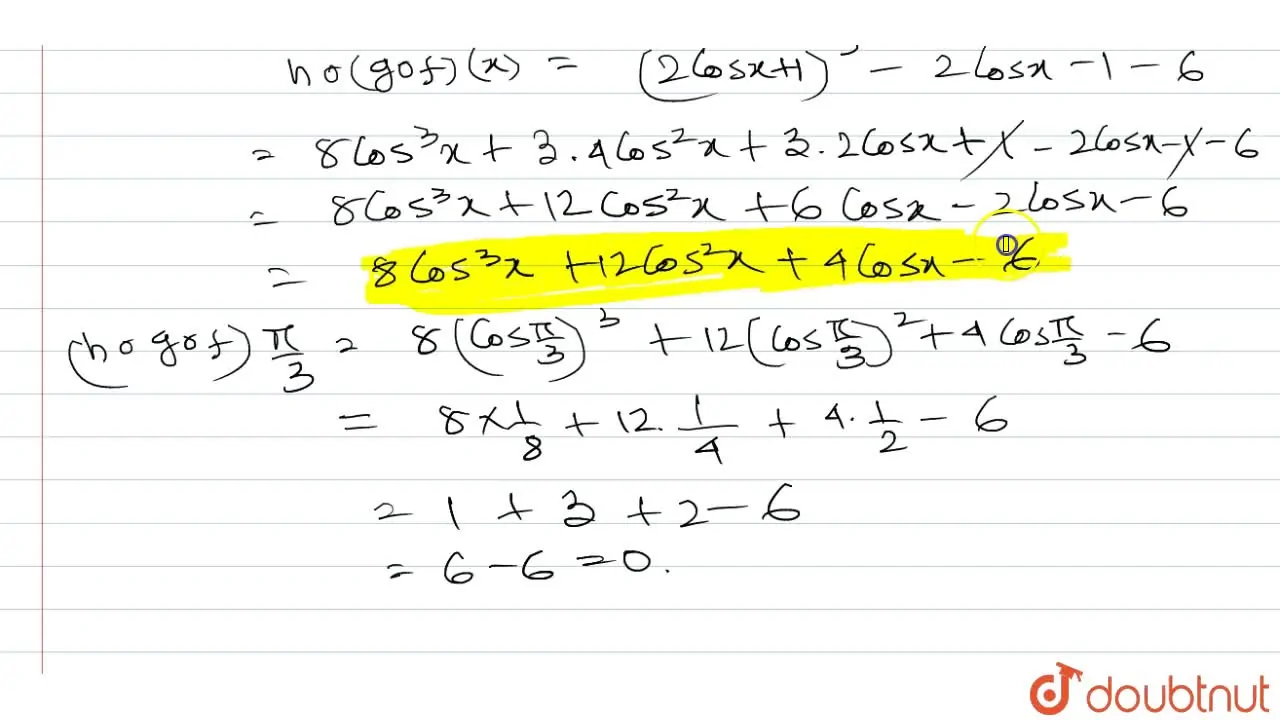 ho(gof)(x) = (2Cosx+1)³ - 2Cosx - 1 - 6
= 8Cos³x + 3.4Cos²x + 3.2Cosx + 1 - 2Cosx - 1 - 6
= 8Cos³x + 12Cos²x + 6Cosx - 2Cosx - 6
= 8Cos³x + 12Cos²x + 4Cosx - 6
(hogof)π/3 = 8(Cosπ/3)³ + 12(Cosπ/3)² + 4Cosπ/3 - 6
= 8×1/8 + 12.1/4 + 4.1/2 - 6
= 1 + 3 + 2 - 6
= 6 - 6 = 0.
doubtnut